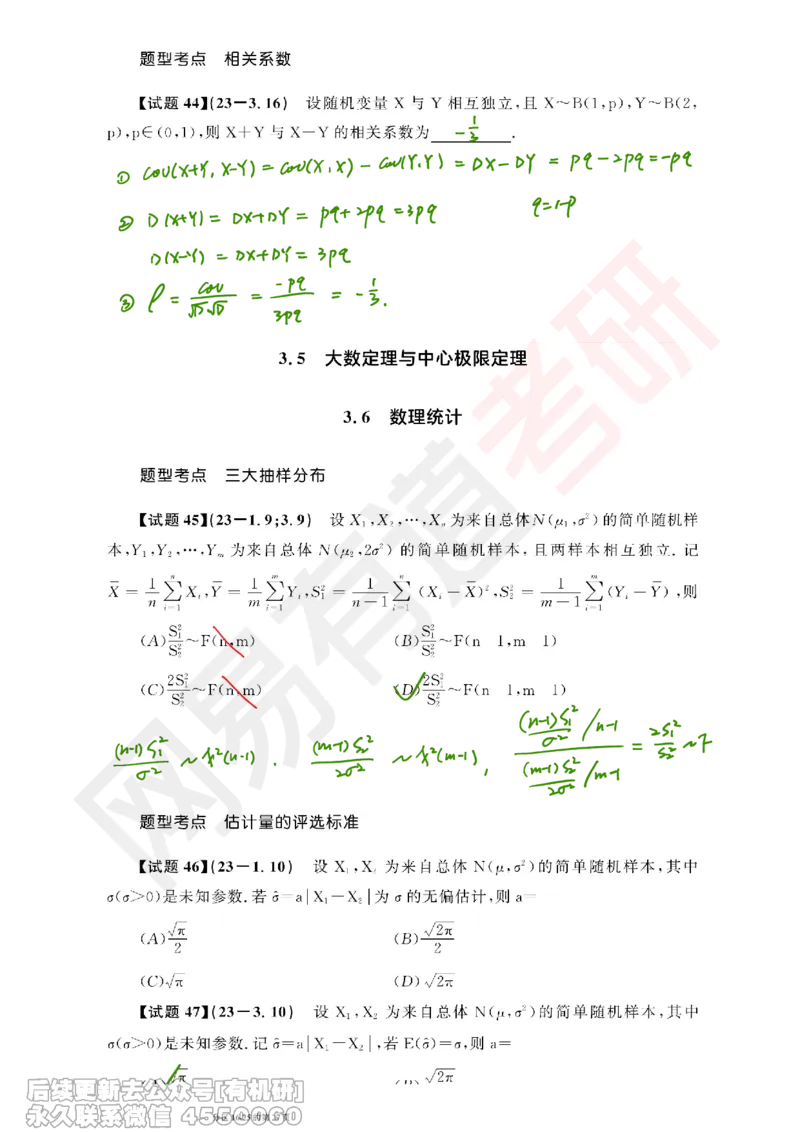 题型考点 相关系数
【试题 44】(23-3.16) 设随机变量 X 与 Y 相互独立,且 X~B(1,p),Y~B(2,
p),p∈(0,1),则 X+Y 与 X-Y 的相关系数为 -1/3 .
① cov(X+Y, X-Y) = cov(X,X) - cov(Y,Y) = DX-DY = pq-2pq=-pq
② D(X+Y) = DX+DY = pq+2pq=3pq q=1-p
D(X-Y) = DX+DY = 3pq
③ ρ = cov/(√D√D) = -pq/3pq = -1/3.
3.5 大数定理与中心极限定理
3.6 数理统计
题型考点 三大抽样分布
【试题 45】(23-1.9;3.9) 设 X₁,X₂,…,Xₙ为来自总体N(μ₁,σ²)的简单随机样
本,Y₁,Y₂,…,Yₘ 为来自总体 N(μ₂,2σ²) 的简单随机样本,且两样本相互独立. 记
X̄ = 1/n ∑ⁿᵢ₌₁ Xᵢ, Ȳ = 1/m ∑ᵐᵢ₌₁ Yᵢ, S₁² = 1/(n-1) ∑ⁿᵢ₌₁ (Xᵢ-X̄)², S₂² = 1/(m-1) ∑ᵐᵢ₌₁ (Yᵢ-Ȳ) ,则
(A) S₁²/S₂² ~F(n,m) (B) S₁²/S₂² ~F(n 1,m 1)
(C) 2S₁²/S₂² ~F(n,m) (D) 2S₁²/S₂² ~F(n 1,m 1)
(n-1)S₁²/σ² ~ χ²(n-1) . (m-1)S₂²/2σ² ~ χ²(m-1) , ((n-1)S₁²/σ² /n-1)/((m-1)S₂²/2σ² /m-1) = 2S₁²/S₂² ~F
题型考点 估计量的评选标准
【试题 46】(23-1.10) 设 X₁,X₂ 为来自总体 N(μ,σ²)的简单随机样本,其中
σ(σ>0)是未知参数.若 σ̂=a|X₁-X₂|为 σ 的无偏估计,则 a=
(A) √π/2 (B) √2π/2
(C)√π (D)√2π
【试题 47】(23-3.10) 设 X₁,X₂ 为来自总体 N(μ,σ²)的简单随机样本,其中
σ(σ>0)是未知参数.记 σ̂=a|X₁-X₂|,若 E(σ̂)=σ,则 a=
√π √2π
后续更新去公众号[有机研]
永久联系微信 4550060
网易有道考研